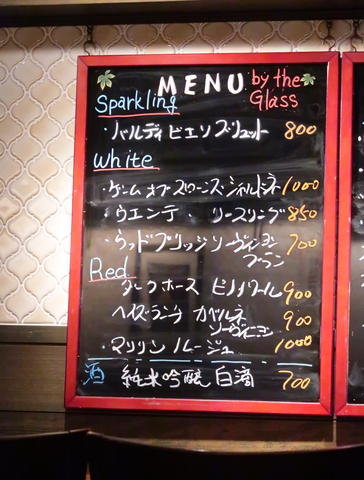 MENU by the Glass
Sparkling
・バルディビエソ ブリュット 800
White
・ゲーム オブ スローンズ シャルドネ 1000
・ウエンテ・リースリング 850
・ウッドブリッジ ソーヴィニヨン ブラン 700
Red
ダークホース ピノノワール 900
ヘイズランチ カベルネ ソーヴィニヨン 900
・マリリン ルージュ 1000
酒 純米吟醸 白滴 700